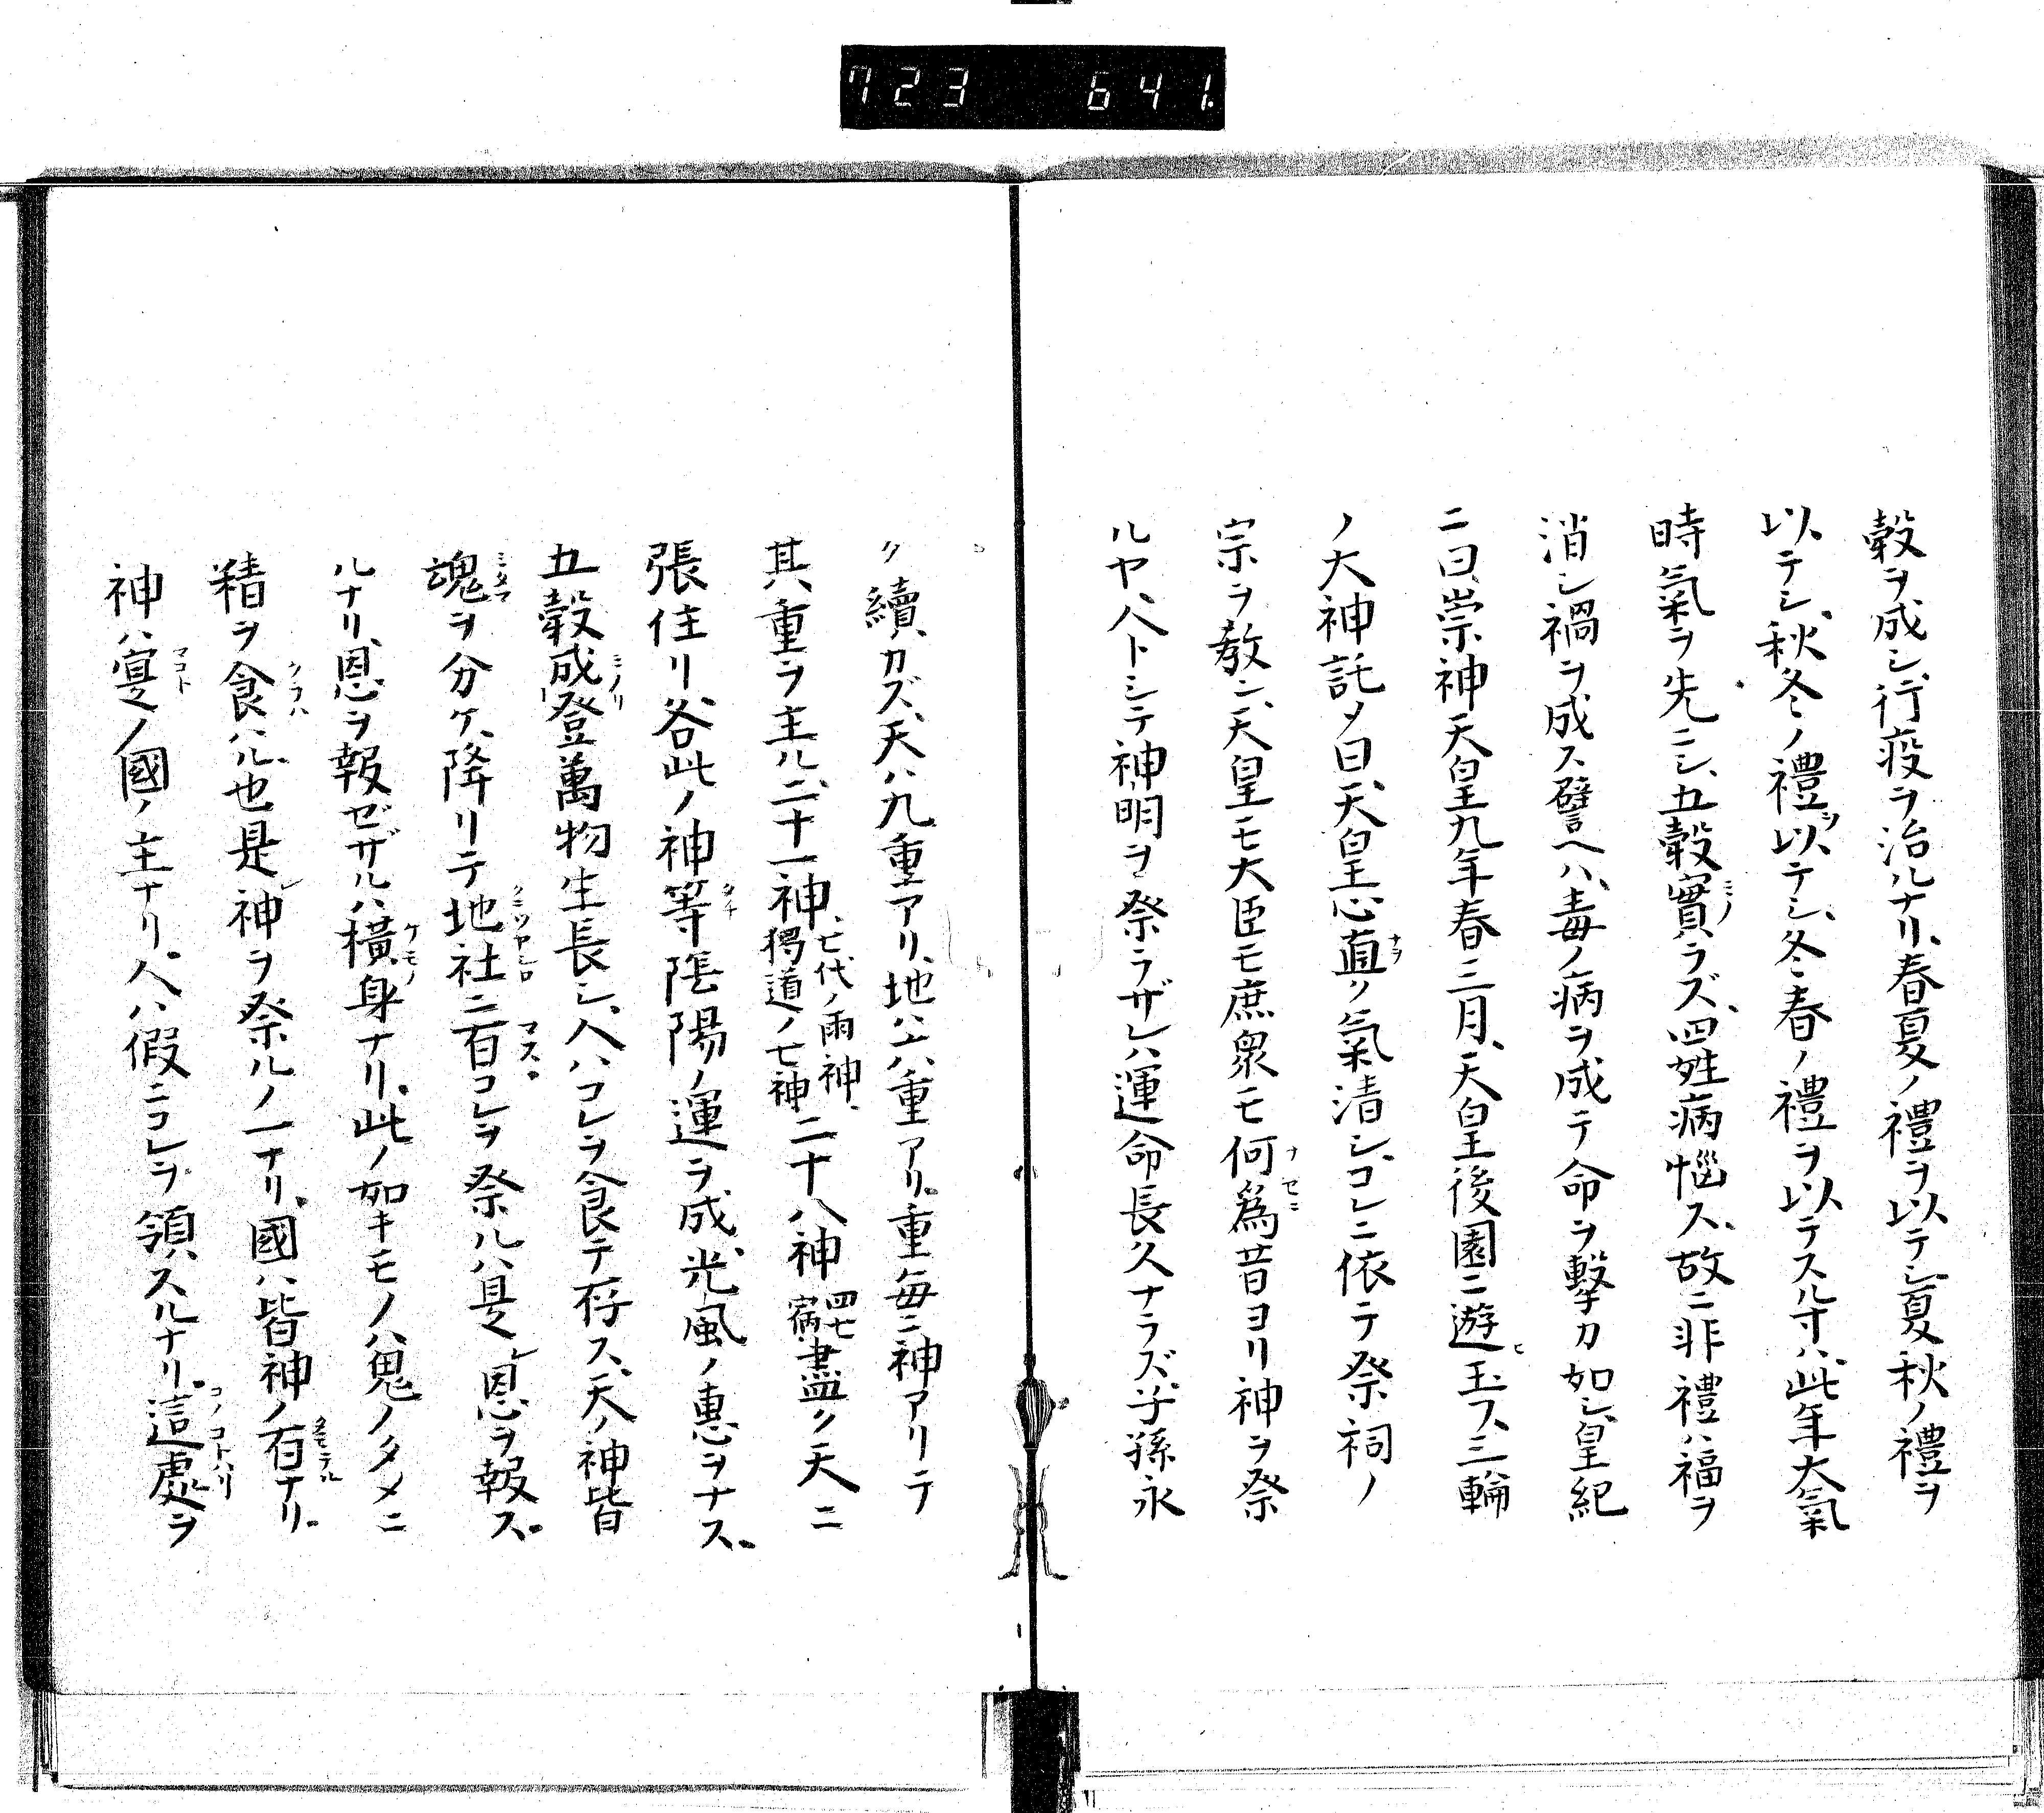 723 641.
穀ヲ成シ、行疫ヲ治ルナリ、春夏ノ禮ヲ以テシ、夏秋ノ禮ヲ
以テシ、秋冬ノ禮ヲ以テシ、冬春ノ禮ヲ以テスル寸ハ、此年大氣
時氣ヲ先ニシ、五穀實ミノラズ、四姓病惱ス、故ニ非禮ハ福ヲ
消シ禍ヲ成ス、譬ヘハ、毒ノ病ヲ成テ命ヲ擊カ如シ、皇紀
ニ曰、崇神天皇九年春二月、天皇後園ニ遊ヒ玉フ、三輪
ノ大神託メ曰、天皇心直ナヲク氣清シ、コレニ依テ祭祠ノ
宗ヲ教シ、天皇モ大臣モ庶衆モ何爲ナセニ昔ヨリ神ヲ祭
ルヤ、人トシテ神明ヲ祭ラザレハ運命長久ナラズ、子孫永
ク續カズ、天ハ九重アリ、地ハ八重アリ、重每ニ神アリテ
其重ヲ主ル、二十一神、七代ノ兩神、獨道ノ七神二十八神四七宿盡ク天ニ
張住リ、各此ノ神等タチ陰陽ノ運ヲ成、光風ノ惠ヲナス、
五穀成登ミノリ萬物生長シ、人ハコレヲ食テ存ス、天ノ神皆
魂ミタマヲ分ケ、降リテ地社クニツヤシロニ有マス、コレヲ祭ルハ是レ恩ヲ報ス、
ルナリ、恩ヲ報ゼザルハ橫身ケモノナリ、此ノ如キモノハ鬼ノタメニ
精ヲ食クラハルヽ也、是レ神ヲ祭ルノ一ナリ、國ハ皆神ノ有タモテルナリ、
神ハ寔マコトノ國ノ主ナリ、人ハ假ニコレヲ領スルナリ、這處コノコトハリヲ